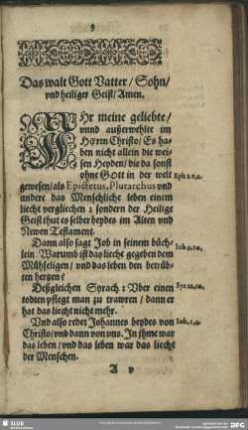 9
Das walt Gott Vatter / Sohn /
vnd heiliger Geist / Amen.
IHr meine geliebte /
vnnd außerwehlte im
HErrn Christo / Es ha-
ben nicht allein die wei-
sen Heyden / die da sonst
ohne GOtt in der welt
gewesen / als Epictetus, Plutarchus vnd
andere das Menschliche leben einem
liecht verglichen : sondern der Heilige
Geist thut es selber beydes im Alten vnd
Newen Testament.
Dann also sagt Job in seinem büch-
lein: Warumb ist das liecht gegeben dem
Mühseligen / vnd das leben den betrüb-
ten hertzen?
Deßgleichen Syrach: Vber einen
todten pflegt man zu trawren / dann er
hat das liecht nicht mehr.
Vnd also redet Johannes beydes von
Christo / vnd dann von vns. In jhme war
das leben / vnd das leben war das liecht
der Menschen.
A v
SLUB